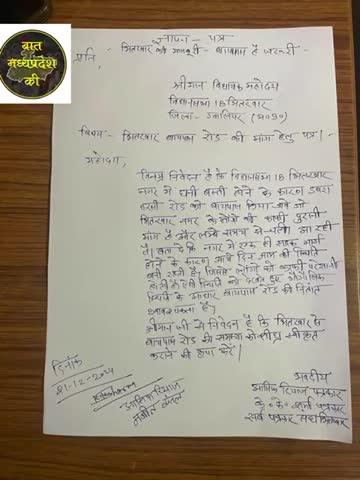 बात
मध्यप्रदेश
की
ज्ञापन - पत्र
भितरवार की मजबूरी - बायपास है जरूरी -
प्रति,
श्रीमान विधायक महोदय
विधानसभा 18 भितरवार
जिला - ग्वालियर (म०प्र०)
विषय - भितरवार बायपास रोड की मांग हेतु पत्र।
महोदय,
विनम्र निवेदन है कि विधानसभा 18 भितरवार
नगर में घनी बस्ती होने के कारण डबरा
रोड को बायपास किया जावे जो
भितरवार नगर के लोगों की काफी पुरानी
मांग है और लम्बे समय से चली आ रही
है। नगर में एक ही मार्ग
होने के कारण आये दिन जाम की स्थिति
बनी रहती है, जिससे लोगों को काफी परेशानी
स्थिति को देखते हुए
स्थिति के अनुसार बायपास रोड की नितांत
आवश्यकता है।
श्रीमान जी से निवेदन है कि भितरवार के
बायपास रोड की समस्या को शीघ्र स्वीकृत
कराने की कृपा करें।
दिनांक
21-12-2024
भवदीय
पत्रकार